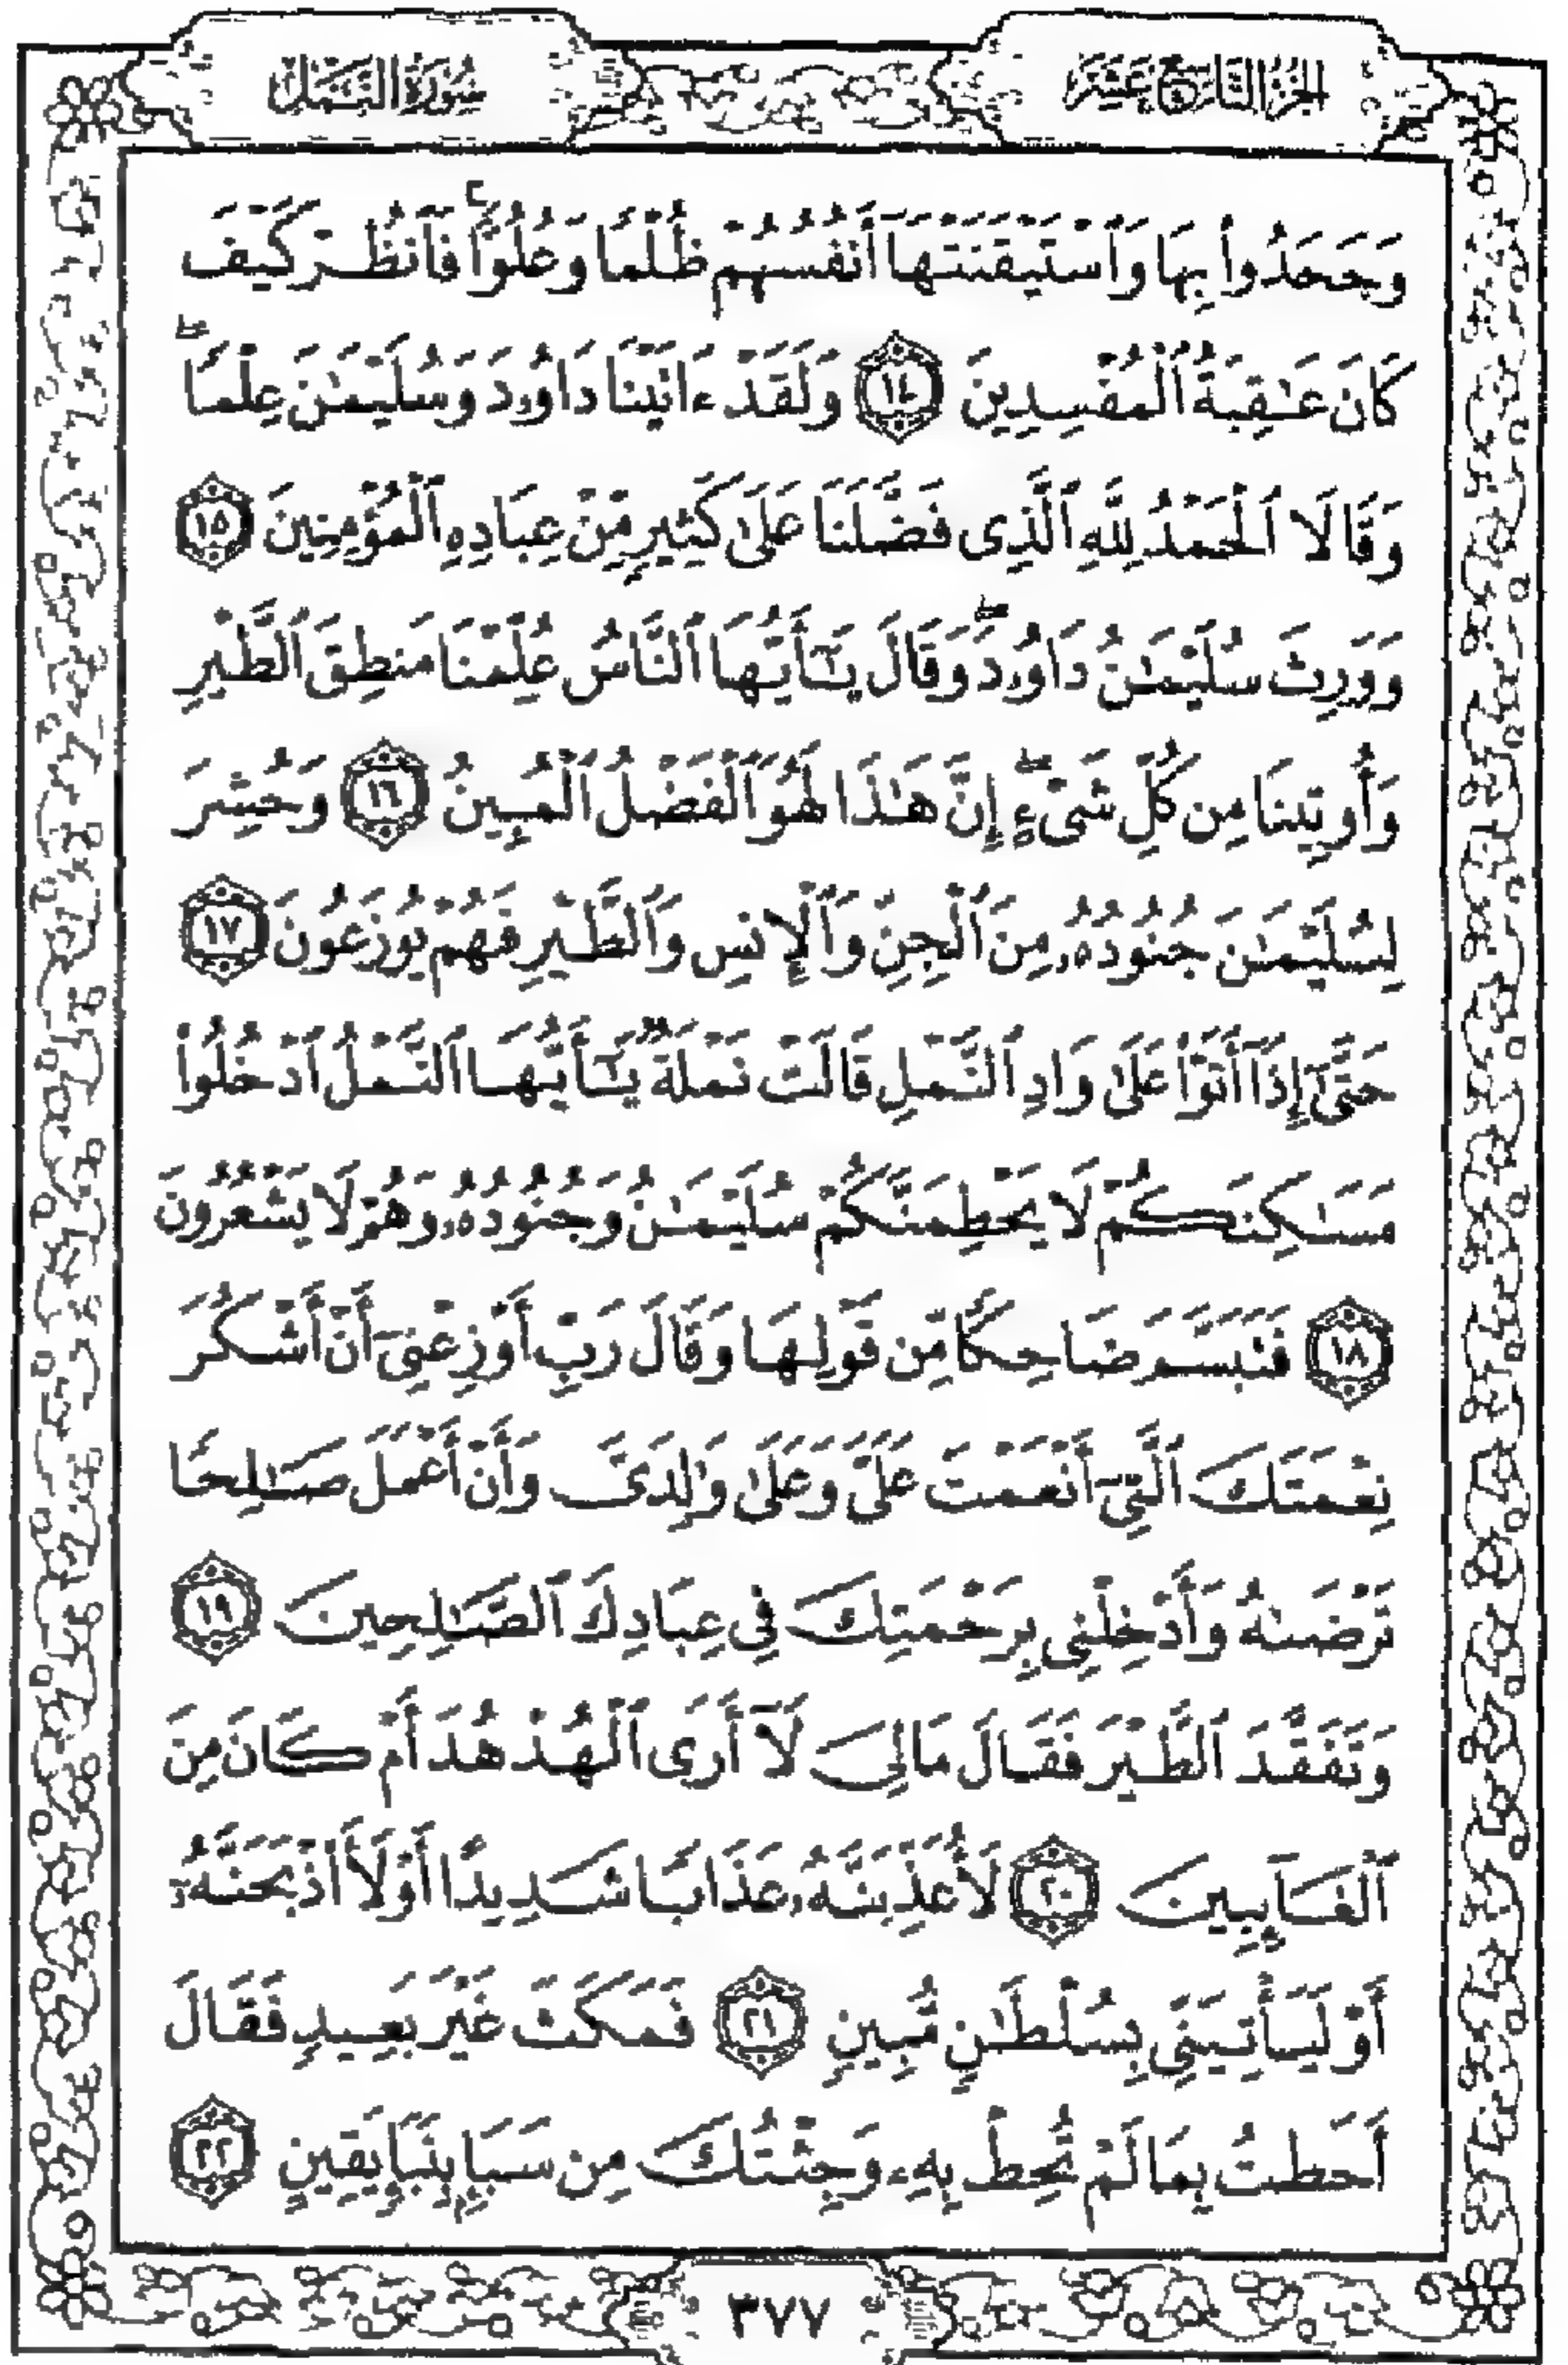 الجزء التاسع عشر
سورة النمل
وَجَحَدُوا۟ بِهَا وَٱسْتَيْقَنَتْهَآ أَنفُسُهُمْ ظُلْمًا وَعُلُوًّۭا ۚ فَٱنظُرْ كَيْفَ
كَانَ عَـٰقِبَةُ ٱلْمُفْسِدِينَ ١٤ وَلَقَدْ ءَاتَيْنَا دَاوُۥدَ وَسُلَيْمَـٰنَ عِلْمًا ۖ
وَقَالَا ٱلْحَمْدُ لِلَّهِ ٱلَّذِى فَضَّلَنَا عَلَىٰ كَثِيرٍ مِّنْ عِبَادِهِ ٱلْمُؤْمِنِينَ ١٥
وَوَرِثَ سُلَيْمَـٰنُ دَاوُۥدَ ۖ وَقَالَ يَـٰٓأَيُّهَا ٱلنَّاسُ عُلِّمْنَا مَنطِقَ ٱلطَّيْرِ
وَأُوتِينَا مِن كُلِّ شَىْءٍ ۖ إِنَّ هَـٰذَا لَهُوَ ٱلْفَضْلُ ٱلْمُبِينُ ١٦ وَحُشِرَ
لِسُلَيْمَـٰنَ جُنُودُهُۥ مِنَ ٱلْجِنِّ وَٱلْإِنسِ وَٱلطَّيْرِ فَهُمْ يُوزَعُونَ ١٧
حَتَّىٰٓ إِذَآ أَتَوْا۟ عَلَىٰ وَادِ ٱلنَّمْلِ قَالَتْ نَمْلَةٌ يَـٰٓأَيُّهَا ٱلنَّمْلُ ٱدْخُلُوا۟
مَسَـٰكِنَكُمْ لَا يَحْطِمَنَّكُمْ سُلَيْمَـٰنُ وَجُنُودُهُۥ وَهُمْ لَا يَشْعُرُونَ
١٨ فَتَبَسَّمَ ضَاحِكًا مِّن قَوْلِهَا وَقَالَ رَبِّ أَوْزِعْنِىٓ أَنْ أَشْكُرَ
نِعْمَتَكَ ٱلَّتِىٓ أَنْعَمْتَ عَلَىَّ وَعَلَىٰ وَٰلِدَىَّ وَأَنْ أَعْمَلَ صَـٰلِحًا
تَرْضَىٰهُ وَأَدْخِلْنِى بِرَحْمَتِكَ فِى عِبَادِكَ ٱلصَّـٰلِحِينَ ١٩
وَتَفَقَّدَ ٱلطَّيْرَ فَقَالَ مَالِىَ لَآ أَرَى ٱلْهُدْهُدَ أَمْ كَانَ مِنَ
ٱلْغَآئِبِينَ ٢٠ لَأُعَذِّبَنَّهُۥ عَذَابًا شَدِيدًا أَوْ لَأَا۟ذْبَحَنَّهُۥٓ
أَوْ لَيَأْتِيَنِّى بِسُلْطَـٰنٍ مُّبِينٍ ٢١ فَمَكَثَ غَيْرَ بَعِيدٍ فَقَالَ
أَحَطتُ بِمَا لَمْ تُحِطْ بِهِۦ وَجِئْتُكَ مِن سَبَإٍۭ بِنَبَإٍ يَقِينٍ ٢٢
٣٧٧